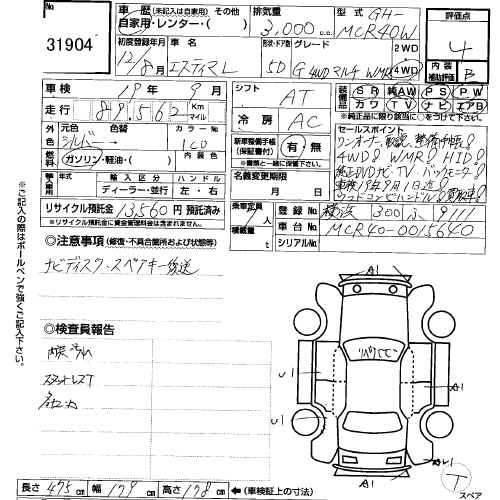 No
31904
車歴 (未記入は自家用) その他
自家用・レンター・( )
初度登録年月
12/8月
車名
エスティマL
排気量
3,000 c.c.
型式
GH-
MCR40W
形状・ドア数
5D
グレード
G 4WD マルチ WMR
2WD
4WD
評価点
4
内装
補助評価
B
車検 19年 9月
走行 89,562 Km マイル
シフト AT
冷房 AC
装備品
SR 純AW PS PW
カワ TV ナビ エアB
※純正品に限り該当に○をつけて下さい
外色 元色 シルバー 色替
カラーNo
1C0
燃料
ガソリン・軽油・( )
内装色
新車整備手帳
(保証書付)
有・無
※書類と一緒に保管
輸入車用 年式
輸入区分
ディーラー・並行
ハンドル
左・右
名義変更期限
月 日
リサイクル預託金 13,560 円 預託済み
※リサイクル預託金に資金管理料金は含まれません。
セールスポイント
ワンオーナー 取説、整備手帳!
4WD! WMR! HID!
純正DVDナビ・TV・バックモニター!
車検19年9月1日迄!
ウッドコンビハンドル!
乗車定員 7人
積載量 t
登録No 横浜 300 ふ 9111
車台No MCR40-0015640
シリアルNo
◎注意事項 (修復・不具合箇所および状態等)
ナビディスク・スペアキー後送
◎検査員報告
内装ヨゴレ
※ご記入の際はボールペンで強くご記入下さい。
A1
リペアC
U1
A1
U1
A1
A1
T
スペア
長さ 475 cm 幅 179 cm 高さ 178 cm ←(車検証上の寸法)